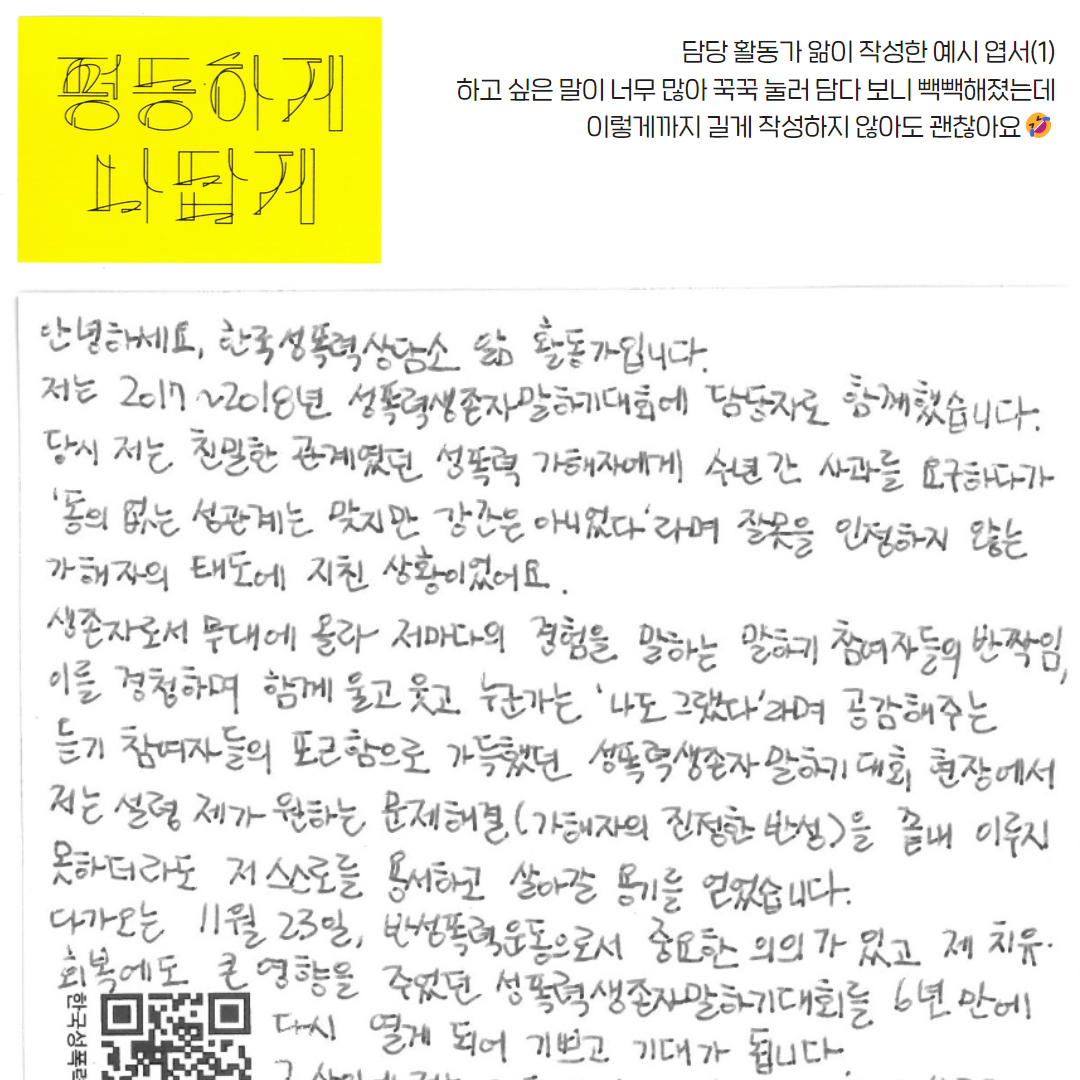 평등하게
나답게
담당 활동가 앎이 작성한 예시 엽서(1)
하고 싶은 말이 너무 많아 꾹꾹 눌러 담다 보니 빽빽해졌는데
이렇게까지 길게 작성하지 않아도 괜찮아요🤣
안녕하세요, 한국성폭력상담소 앎 활동가입니다.
저는 2017~2018년 성폭력생존자말하기대회에 담당자로 함께했습니다.
당시 저는 친밀한 관계였던 성폭력 가해자에게 수년간 사과를 요구하다가
'동의 없는 성관계는 맞지만 강간은 아니었다'라며 잘못을 인정하지 않는
가해자의 태도에 지친 상황이었어요.
생존자로서 무대에 올라 저마다의 경험을 말하는 말하기 참여자들의 반짝임,
이를 경청하며 함께 울고 웃고 누군가는 '나도 그랬다'라며 공감해주는
듣기 참여자들의 포근함으로 가득했던 성폭력생존자말하기대회 현장에서
저는 설령 제가 원하는 문제해결(가해자의 진정한 반성)을 끝내 이루지
못하더라도 저 스스로를 용서하고 살아갈 용기를 얻었습니다.
다가오는 11월 23일, 반성폭력운동으로서 중요한 의의가 있고 제 치유·
회복에도 큰 영향을 주었던 성폭력생존자말하기대회를 6년 만에
다시 열게 되어 기쁘고 기대가 됩니다.
한국성폭력